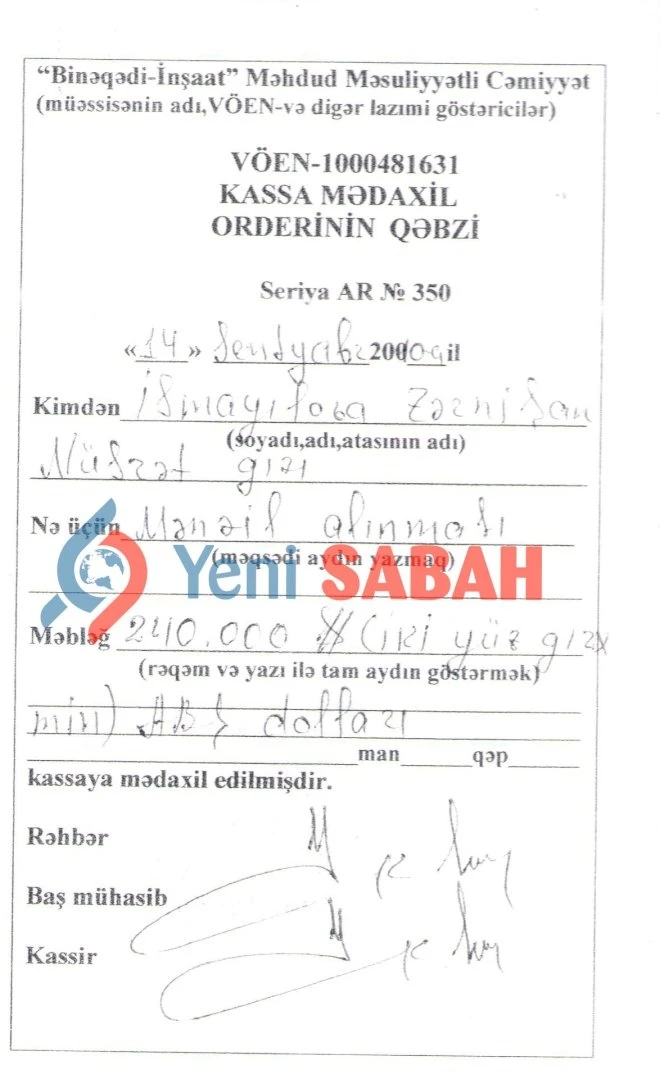 “Binəqədi-İnşaat” Məhdud Məsuliyyətli Cəmiyyət
(müəssisənin adı,VÖEN-və digər lazımi göstəricilər)
VÖEN-1000481631
KASSA MƏDAXİL
ORDERİNİN QƏBZİ
Seriya AR № 350
«14» Sentyabr 2009il
Kimdən İsmayılova Zərnişan
(soyadı,adı,atasının adı)
Nüsrət qızı
Nə üçün Mənzil alınması
(məqsədi aydın yazmaq)
Yeni SABAH
Məbləğ 240.000 $ (iki yüz qırx
(rəqəm və yazı ilə tam aydın göstərmək)
min) ABŞ dolları
man qəp
kassaya mədaxil edilmişdir.
Rəhbər
Baş mühasib
Kassir